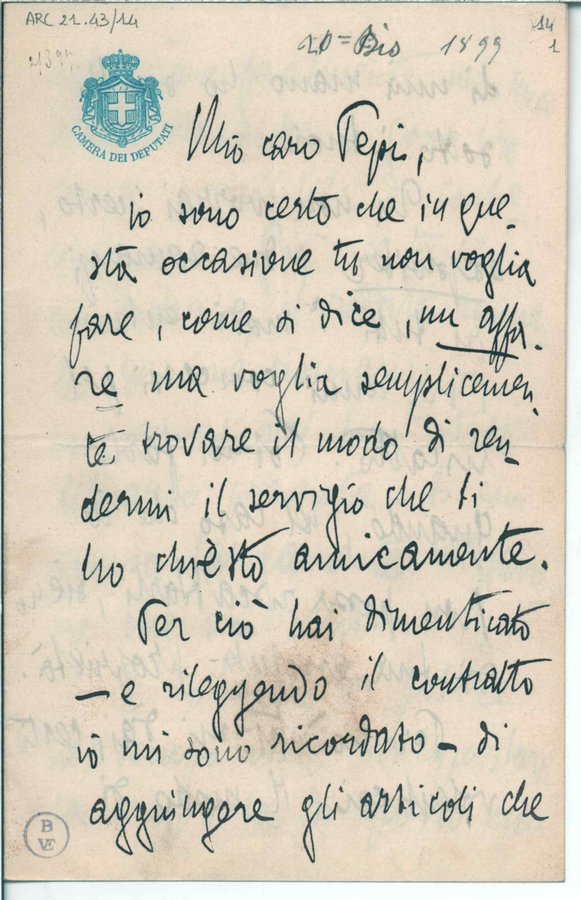 ARC 21.43/14
14
1
20 = Bio 1899
CAMERA DEI DEPUTATI
Mio caro Pepi,
io sono certo che in que-
sta occasione tu non voglia
fare, come si dice, un affa-
re ma voglia semplicemen-
te trovare il modo di ren-
dermi il servigio che ti
ho chiesto amicamente.
Per ciò hai dimenticato
— e rileggendo il contratto
io mi sono ricordato — di
aggiungere gli articoli che
B
VE